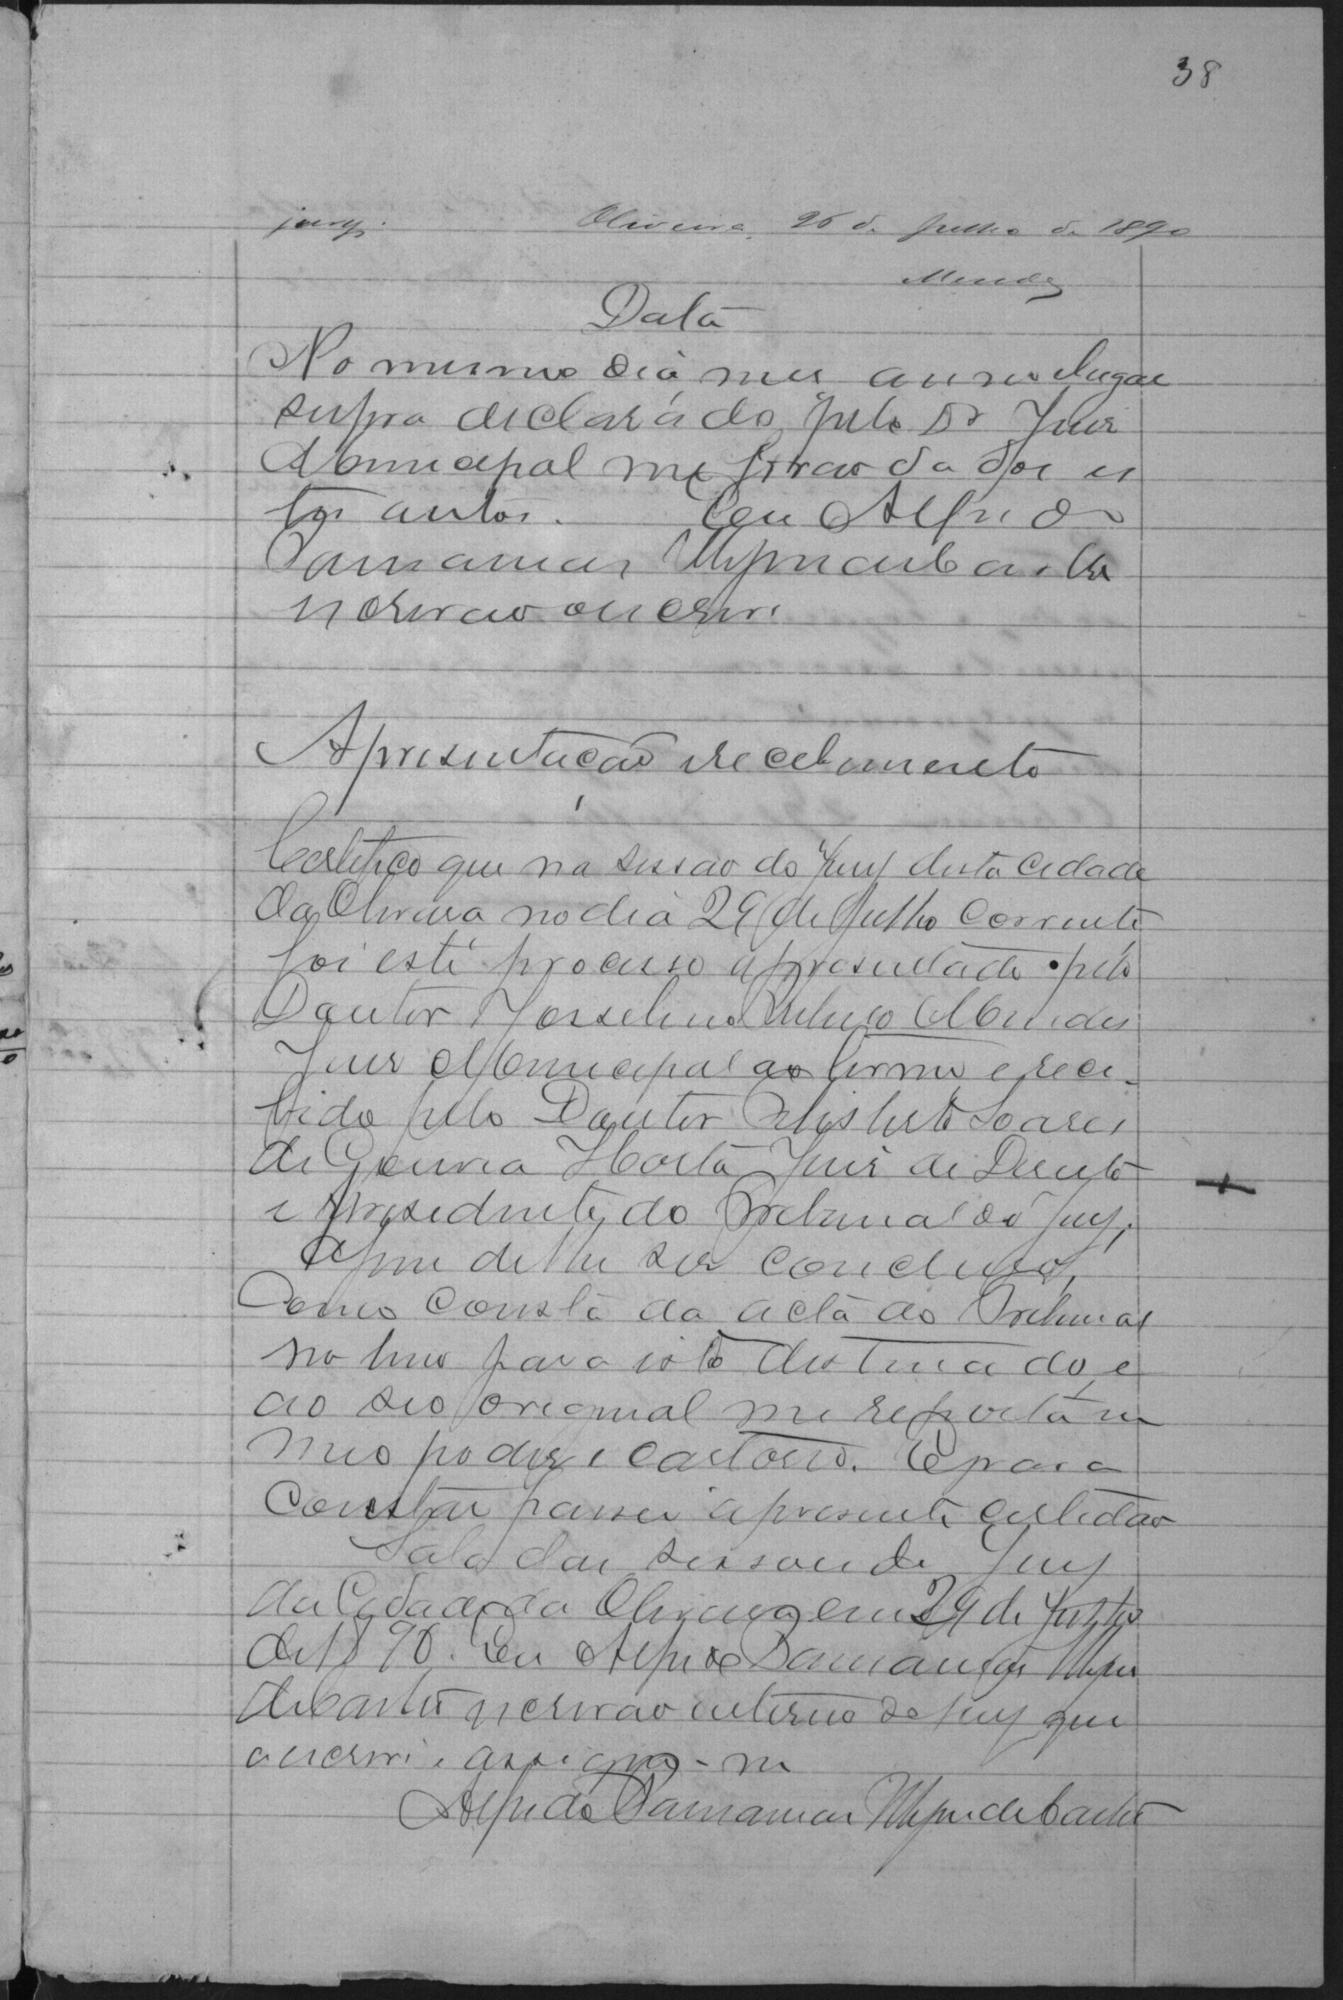 38
jury. Oliveira, 26 de Julho de 1890
Mendes
Data
No mesmo dia mes anno e lugar
supra declarado, pelo Dr Juis
Municipal me forão dados es
tes autos. Eu Alfredo
Parnamear
escrivão o escrevi
Apresentação e recebimento
Certifico que na sessão do Jury desta cidade
da Oliveira no dia 29 de Julho corrente
foi este processo apresentado pelo
Doutor Josselino Mendes
Juis Municipal do termo, e rece-
bido pelo Doutor Felisberto Soares
de Gouvea Horta Juis de Direito
e Presidente do Tribunal do Jury,
afim de lhe ser concluso,
como consta da acta do Tribunal
no livro para isto destinado, e
ao seo original me reporto em
meo poder e cartorio. E para
constar passei a presente certidão
Sala das sessoens do Jury
da Cidade da Oliveira em 29 de Julho
de 1890. Eu Alfredo Parnamear
escrivão interino do jury que
a escrevi e assigno-me
Alfredo Parnamear